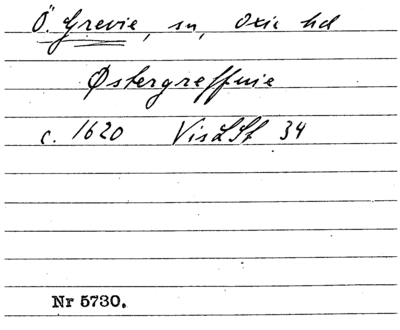 Ö. Grevie, sn, Oxie hd
Østergreffuie
c. 1620 VisLSt 34
Nr 5730.